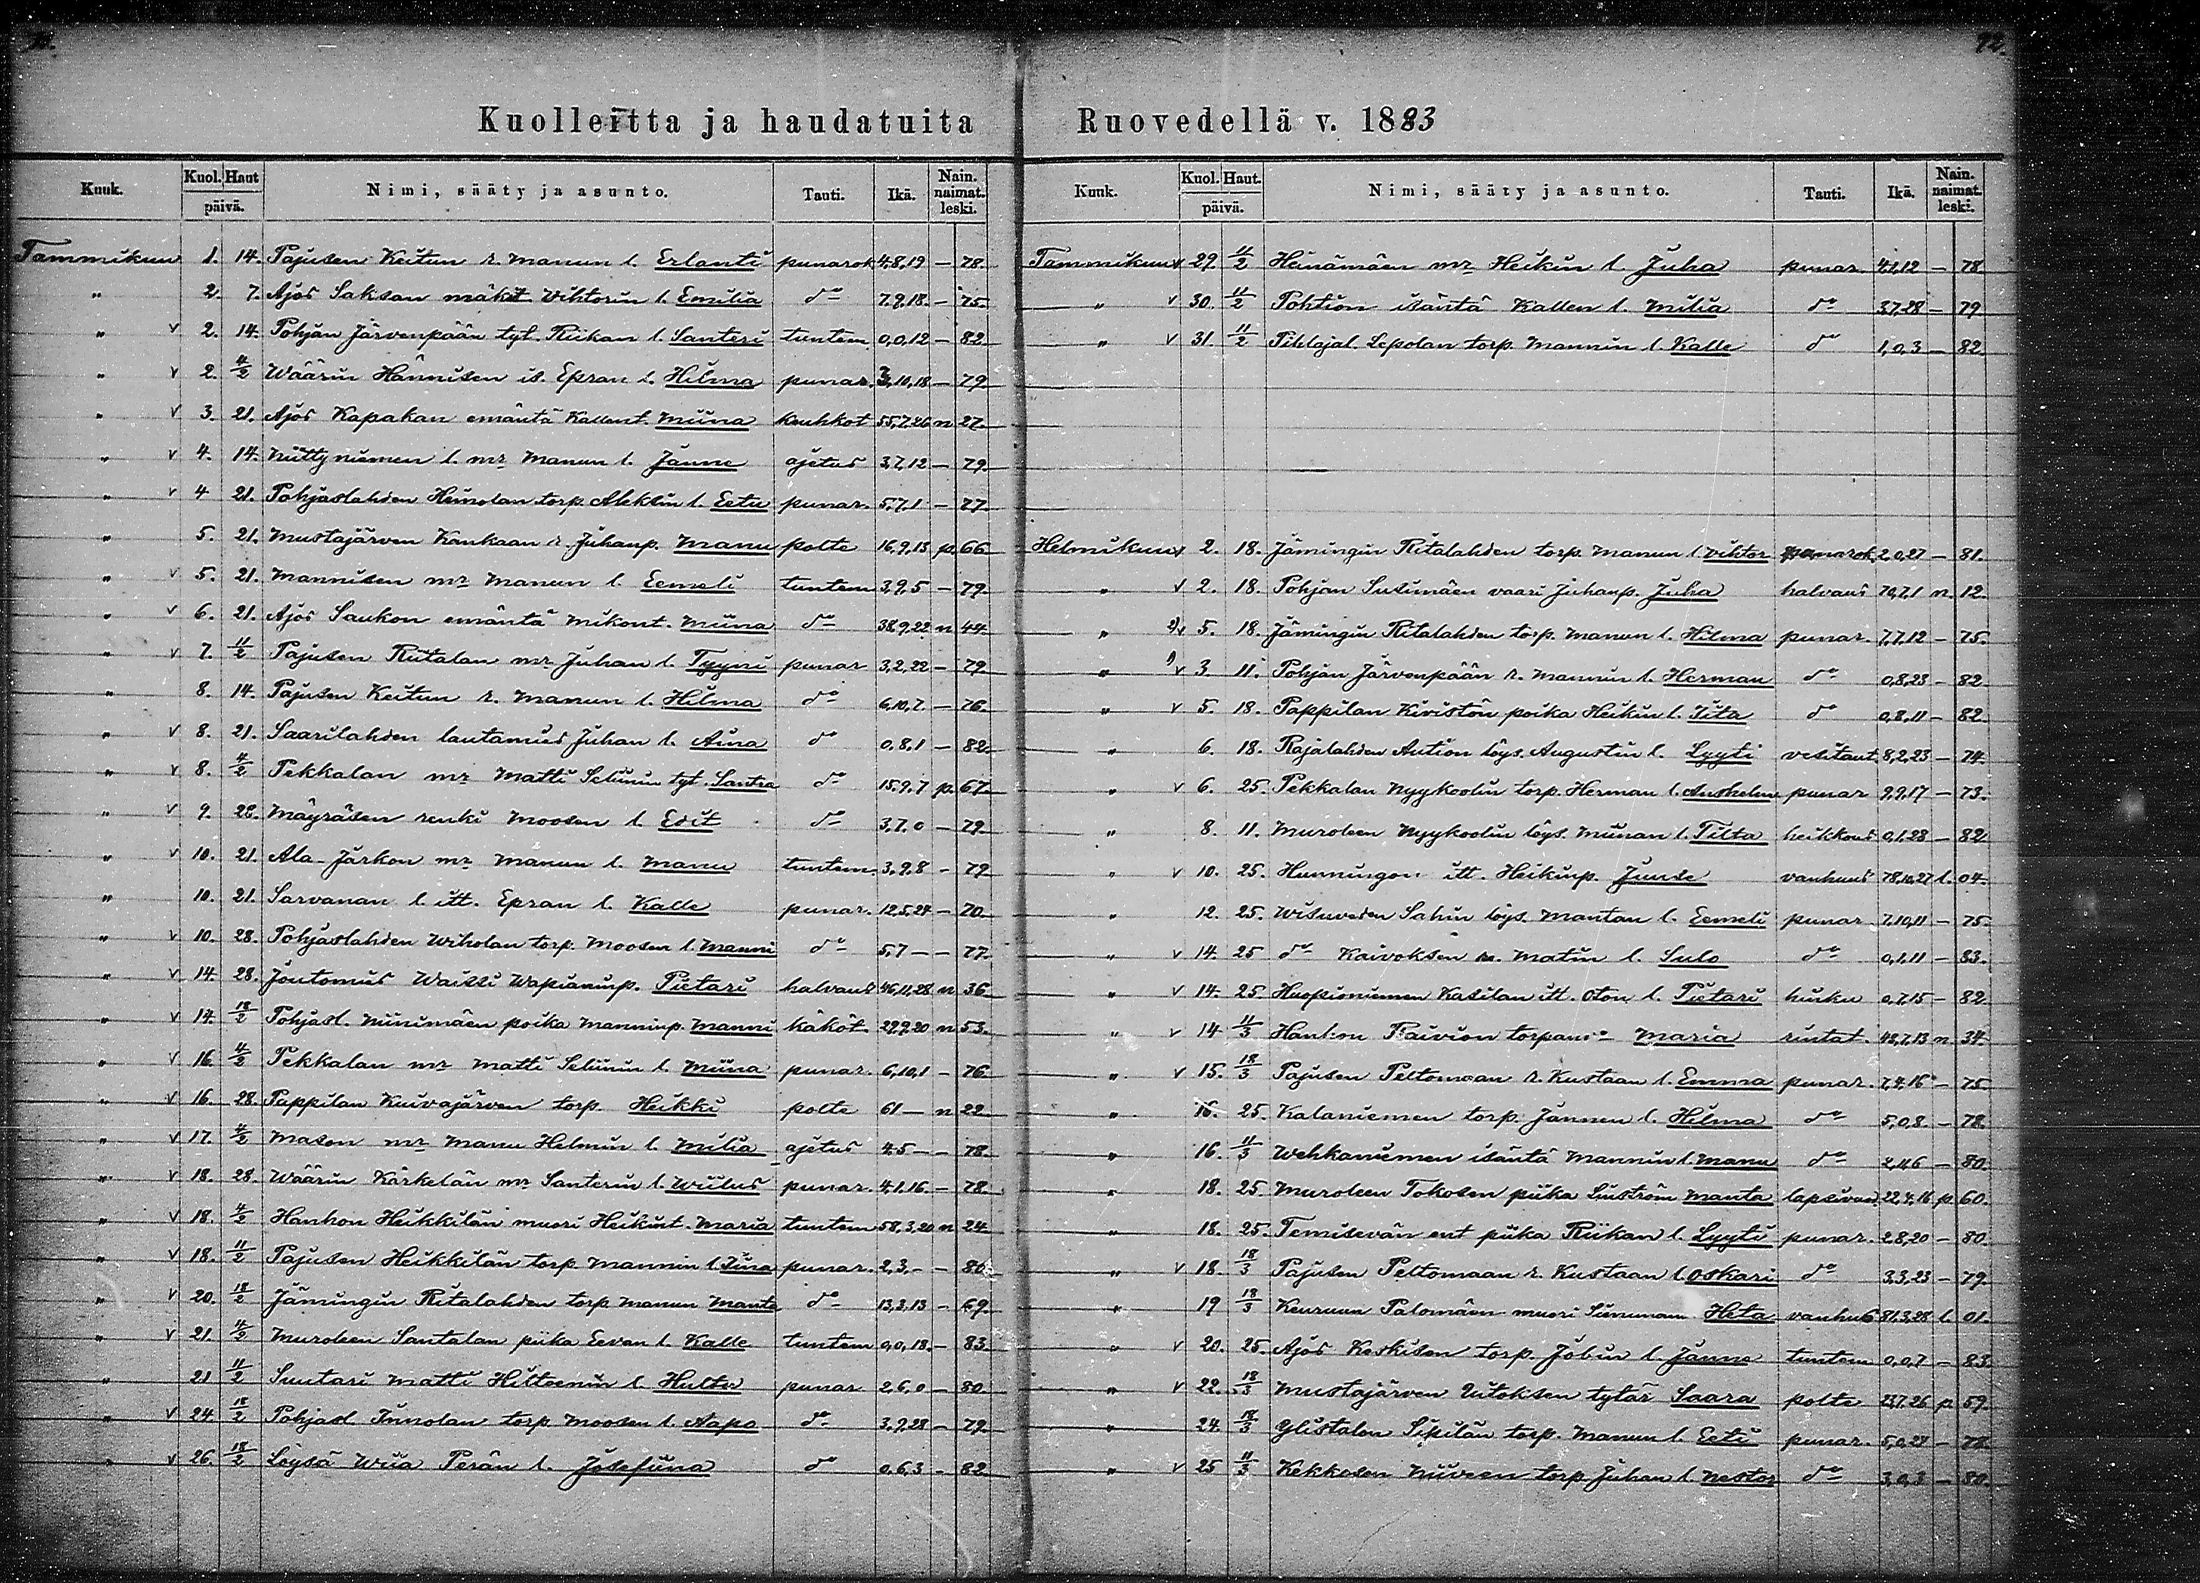 92.
Kuolleitta ja haudatuita
Kuuk. Kuol. Haut päivä. Nimi, sääty ja asunto. Tauti. Ikä. Nain. naimat. leski.
Tammikuun 1. 14. Pajusen Keitun r. Manun l. Erlanti punarok 4,8,19 — 78.
" 2. 7. Ajos Saksan mäkit Vihtorin l. Emilia do 7.9.18. — 75.
" v 2. 14. Pohjan Järvenpään tyt. Riikan l. Santeri tuntem 0,0,12 — 82.
" v 2. 4/2 Wäärin Hännisen is. Epran l. Hilma punar. 3,10,18 — 79.
" v 3. 21. Ajos Kapakan emäntä Kallent. Miina keuhkot 55,7,26 n 27.
" v 4. 14. Niittyniemen l. mr Manun l. Janne ajetus 3,7,12 — 79.
" v 4 21. Pohjaslahden Heinolan torp. Aleksin l. Eetu punar. 5,7,1 — 77.
" 5. 21. Mustajärven Kankaan r. Juhanp. Manu polte 16,9,13 p. 66.
" v 5. 21. Mannisen mr Manun l. Eemeli tuntem 3,9,5 — 79.
" v 6. 21. Ajos Saukon emäntä Mikont. Miina do 38,9,22 n 44.
" v 7. 11/2 Pajusen Riitalan mr Juhan l. Tyyni punar 3,2,22 — 79.
" 8. 14. Pajusen Keitun r. Manun l. Hilma do 6,10,7. — 76.
" v 8. 21. Saarilahden lautamies Juhan l. Aina do 0,8,1 — 82
" v 8. 4/2 Pekkalan mr Matti Seliinin tyt. Santra do 15,9,7 p. 67.
" v 9. 28. Mäyräsen renki Moosen l. Edit do 3,7,0 — 79.
" v 10. 21. Ala-Järkon mr Manun l. Manu tuntem. 3,9,8 — 79
" 10. 21. Sarvanan l. itt. Epran l. Kalle punar. 12,5,24 — 70.
" v 10. 28. Pohjaslahden Wiholan torp. Moosen l. Manni do 5,7 — — 77.
" v 14. 28. Joutomies Waissi Wapianinp. Pietari halvaus 46,11,28 n 36
" v 14. 18/2 Pohjasl. Niinimäen poika Manninp. Manni käköt. 29,9,20 n 53.
" v 16. 4/2 Pekkalan mr Matti Seliinin l. Miina punar. 6,10,1 — 76
" v 16. 28. Pappilan Kuivajärven torp. Heikki polte 61 — n 22
" v 17. 4/2 Mason mr Manu Helmin l. Milia ajetus 4,5 — — 78.
" v 18. 28. Wäärin Kärkelän mr Santerin l. Wiilus punar. 4,1,16. — 78.
" v 18. 4/2 Hanhon Heikkilän muori Heikint. Maria tuntem 58,3,20 n 24.
" v 18. 11/2 Pajusen Heikkilän torp. Mannin l. Tiina punar. 2,3,— — 80.
" v 20. 18/2 Jämingin Ritalahden torp Manun Manta do 13,3,13 — 69.
" v 21. 4/2 Muroleen Santalan piika Eevan l. Kalle tuntem 0,0,18. — 83.
" 21 11/2 Suutari Matti Hilteenin l. Hulta punar 2,6,0 — 80
" v 24 18/2 Pohjasl Iinnolan torp. Moosen l. Aapo do 3,9,28 — 79.
" v 26. 18/2 Löysä Wiia Perän l. Josefiina do 0,6,3 — 82
Ruovedellä v. 1883
Kuuk. Kuol. Haut. päivä. Nimi, sääty ja asunto. Tauti. Ikä. Nain. naimat. leski.
Tammikuun v 29 11/2 Heinämäen mr Heikin l. Juha punar 4,1,12 — 78
" v 30. 11/2 Pohtion isäntä Kallen l. Milia do 3,7,28 — 79
" v 31. 11/2 Pihlajal. Lepolan torp. Mannin l. Kalle do 1,0,3 — 82
Helmikuun v 2. 18. Jämingin Ritalahden torp. Manun l Viktor punarok. 2,0,27 — 81.
" v 2. 18. Pohjan Susimäen vaari Juhanp. Juha halvaus 70,7,1 n. 12.
" 2) v 5. 18. Jämingin Ritalahden torp. Manun l. Hilma punar. 7,7,12 — 75.
" 1) v 3 11. Pohjan Järvenpään r. Mannin l. Herman do 0,8,23 — 82.
" v 5. 18. Pappilan Kivistön poika Heikin l. Iita do 0,8,11 — 82.
" 6. 18. Rajalahden Aution löys. Augustin l. Lyyti vesitaut 8,2,23 — 74.
" v 6. 25. Pekkalan Nyykoolin torp. Herman l. Anshelm punar 9,9,17 — 73.
" 8. 11. Muroleen Nyykoolin löys. Miinan l. Tilta heikkous 0,1,28 — 82
" v 10. 25. Hunningon itt. Heikinp. Juuse vanhuus 78,10,27 l. 04.
" 12. 25. Wisuveden Sahin löys. Mantan l. Eemeli punar 7,10,11 — 75.
" v 14. 25 do Kaivoksen m. Matin l. Sulo do 0,1,11 — 83.
" v 14. 25 Huopioniemen Kasilan itt. Oton l. Pietari hinku 0,7,15 — 82.
" v 14 11/3 Hanhon Raivion torpan Maria rintat. 48,7,13 n 34
" v 15. 18/3 Pajusen Peltomaan r. Kustaan l. Emma punar. 7,4,16 — 75.
" 16. 25. Kalaniemen torp. Jannen l. Hilma do 5,0,8. — 78.
" 16. 11/3 Wehkaniemen isäntä Mannin l. Manu do 2,4,6 — 80.
" 18. 25. Muroleen Tokosen piika Liuström Manta lapsivuod 22,4,16 p. 60.
" 18. 25. Temisevän ent piika Riikan l. Lyyti punar. 2,8,20 — 80.
" v 18. 18/3 Pajusen Peltomaan r. Kustaan l. Oskari do 3,3,23 — 79.
" 19 18/3 Keuruun Palomäen muori Heta vanhus 81,3,28 l. 01.
" v 20. 25. Ajos Keskisen torp. Jobin l. Janne tuntem 0,0,7 — 83.
" v 22. 18/3 Mustajärven Uitoksen tytär Saara polte 23,7,26 p 59.
" 24. 18/3 Ylistalon Sipilän torp. Manun l. Eeti punar. 5,0,24 — 78
" v 25 11/3 Kekkosen Niiveen torp Juhan l. Nestor do 3,0,3 — 80.